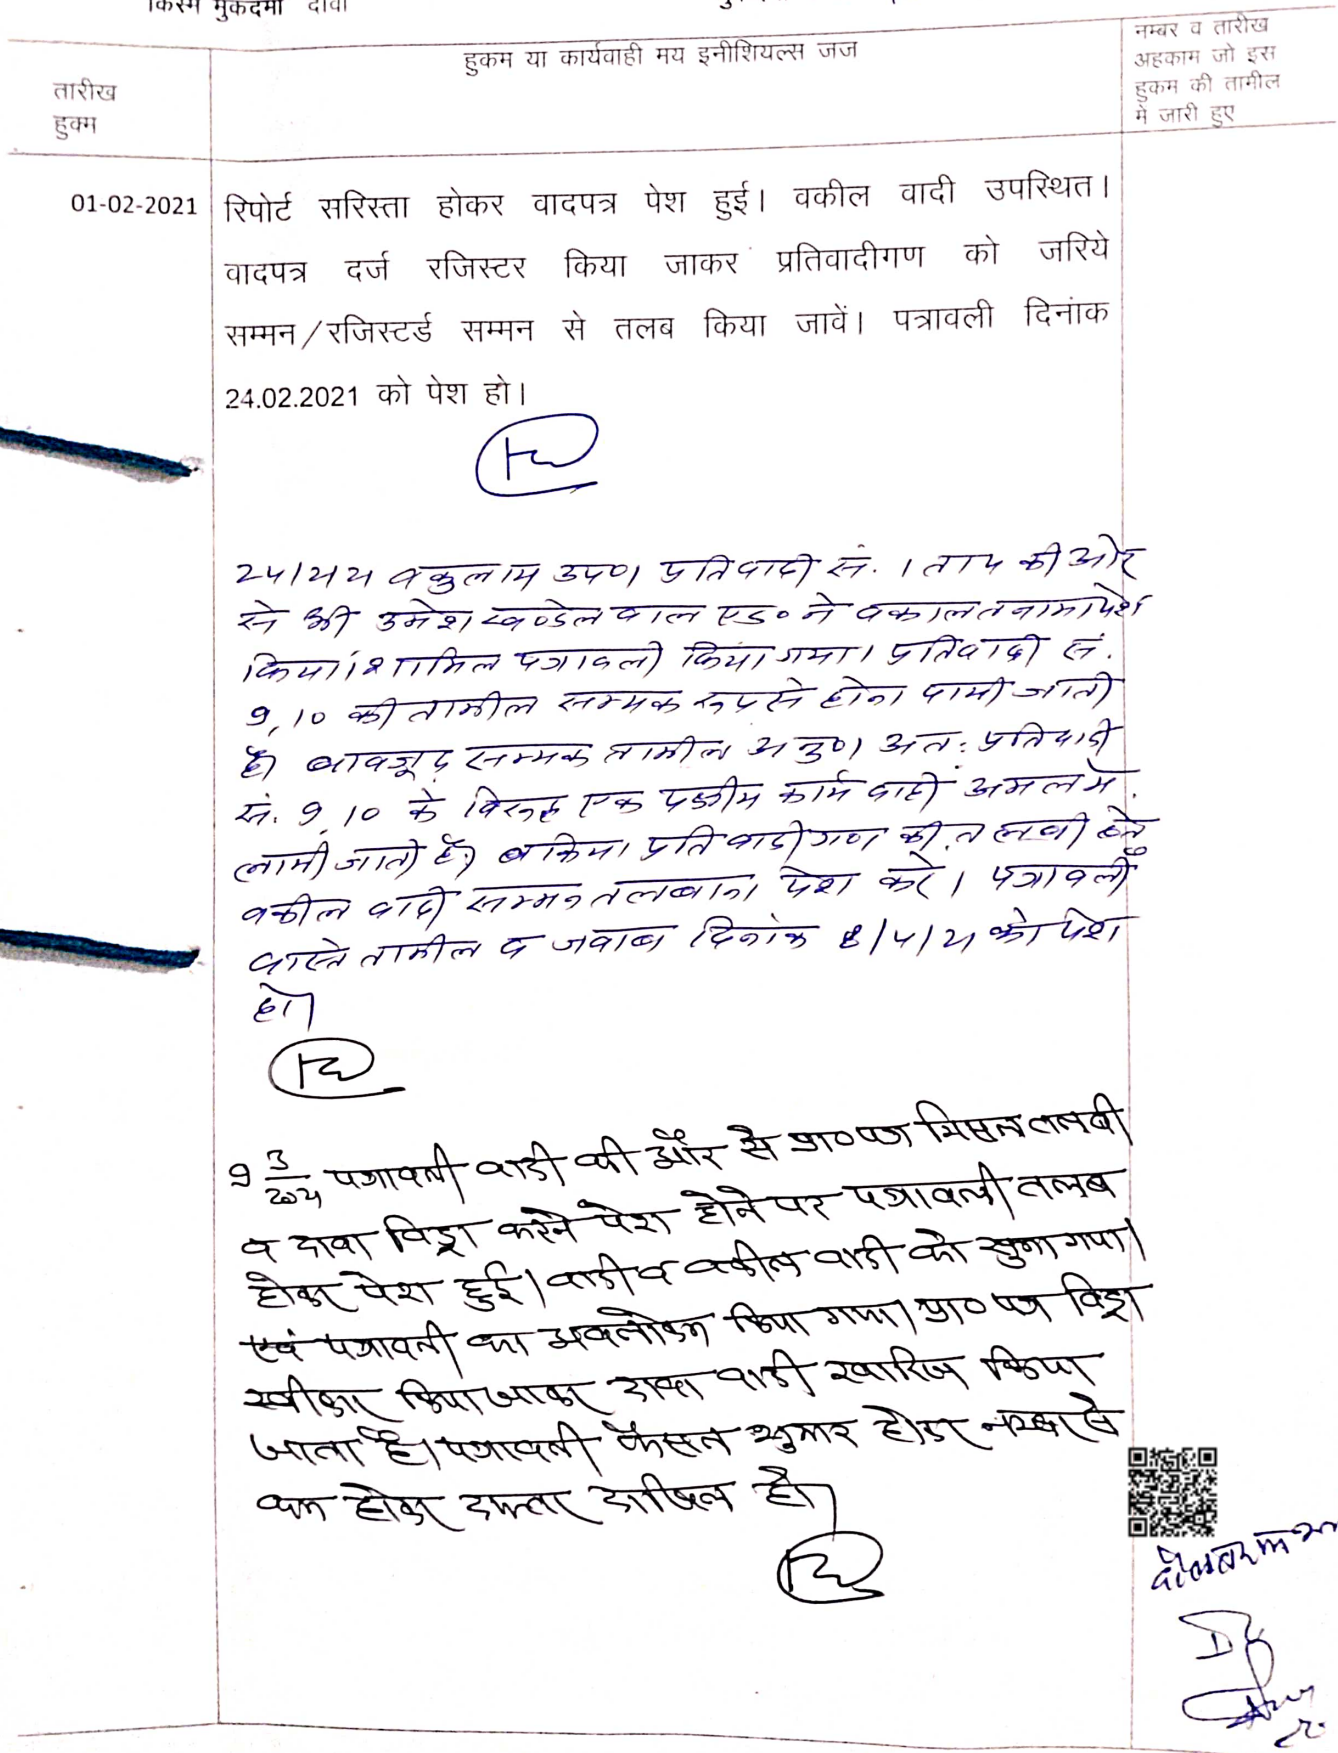 किस्म मुकदमा दावा
तारीख
हुक्म
हुकम या कार्यवाही मय इनीशियल्स जज
नम्बर व तारीख
अहकाम जो इस
हुकम की तामील
में जारी हुए
01-02-2021
रिपोर्ट सरिस्ता होकर वादपत्र पेश हुई। वकील वादी उपस्थित।
वादपत्र दर्ज रजिस्टर किया जाकर प्रतिवादीगण को जरिये
सम्मन/रजिस्टर्ड सम्मन से तलब किया जावें। पत्रावली दिनांक
24.02.2021 को पेश हो।
वकुलाय उप०। प्रतिवादी सं. 1 ता की ओर
से श्री उमेश खण्डेलवाल एड० ने वकालतनामा पेश
किया। शामिल पत्रावली किया गया। प्रतिवादी सं.
9,10 की तामील सम्यक रूप से होना पायी जाती
है। बावजूद सम्यक तामील अनु०। अत: प्रतिवादी
सं. 9,10 के विरूद्ध एक पक्षीय कार्यवाही अमल में
लायी जाती है। बकिया प्रतिवादीगण की तलबी हेतु
वकील वादी सम्मन तलबाना पेश करे। पत्रावली
वास्ते तामील व जवाब दिनांक 8/4/21 को पेश
हो।
पत्रावली वादी की और से प्रा० पत्र मिसल तलबी
व दावा विड्रा करने पेश होने पर पत्रावली तलब
होकर पेश हुई। वादी व वकील वादी को सुना गया।
एवं पत्रावली का अवलोकन किया गया। प्रा० पत्र विड्रा
स्वीकार किया जाकर दावा वादी खारिज किया
जाता है। पत्रावली फैसल शुमार होकर नम्बर से
कम होकर दफ्तर दाखिल हो।